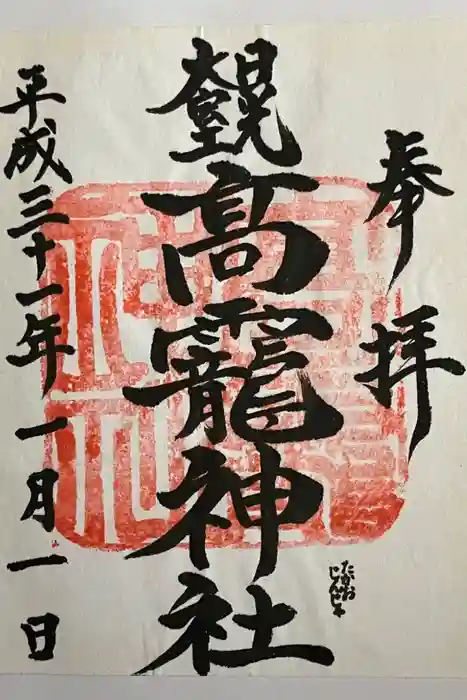 奉拝
日光
大室
高靇神社
たかお
じんじゃ
平成三十一年一月一日